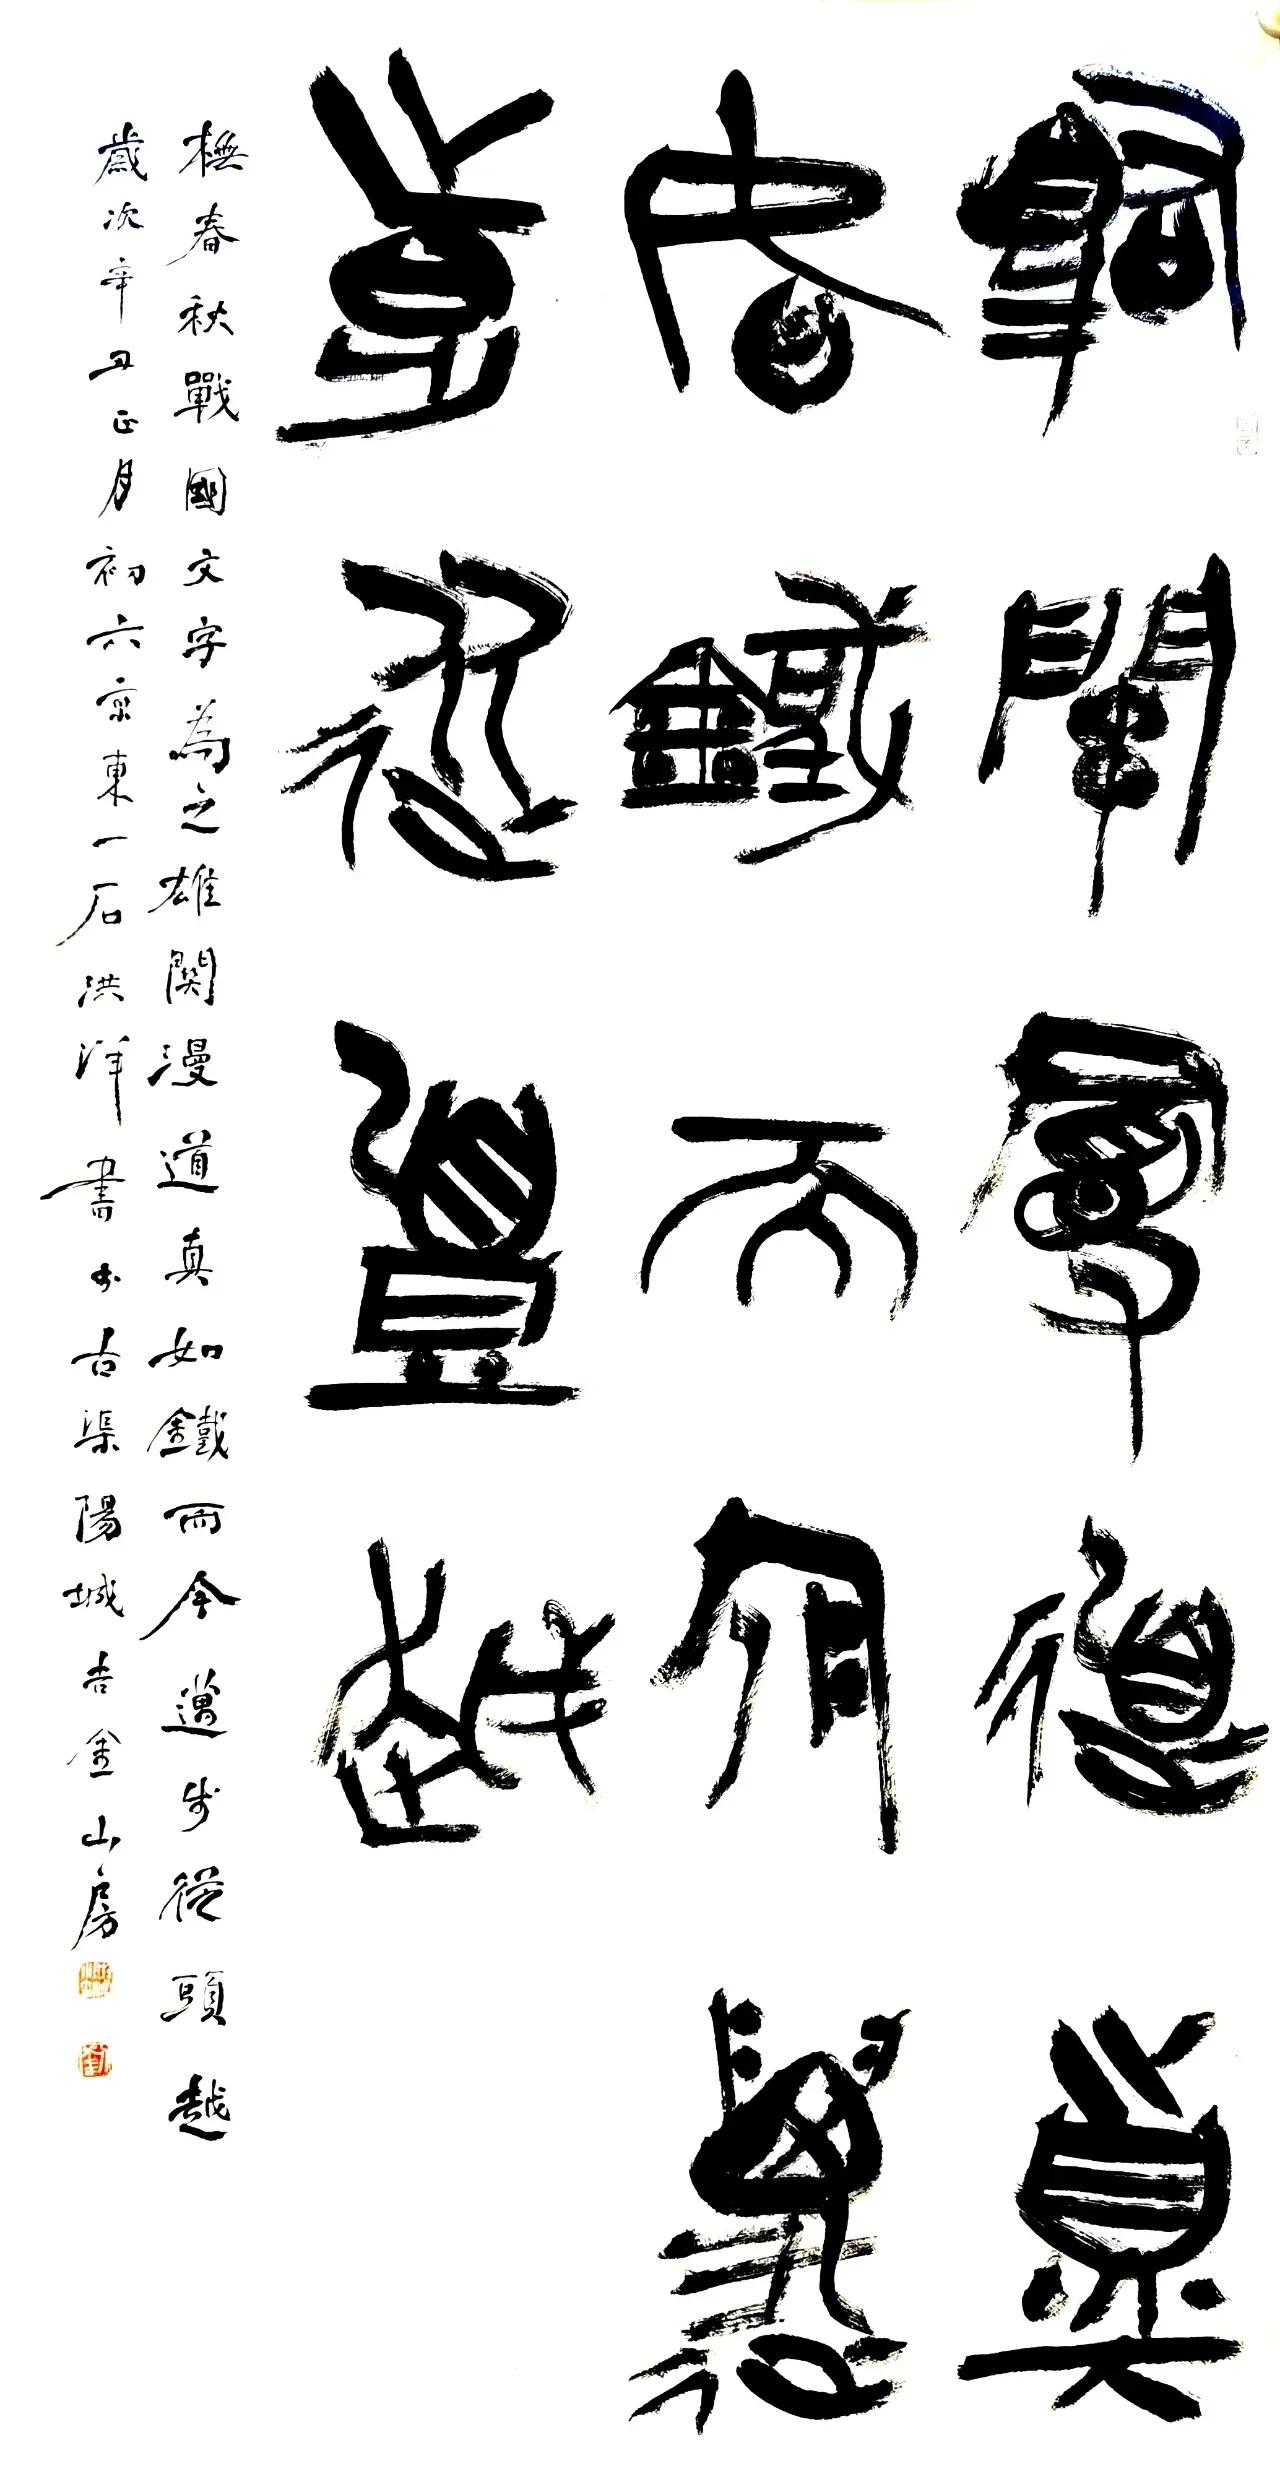 雄關曼道真
如鐵而今邁
步從頭越
橅春秋戰國文字為之雄関漫道真如鐵而今邁步從頭越
歲次辛丑正月初六京東一石洪洋書於古渠陽城吉金山房